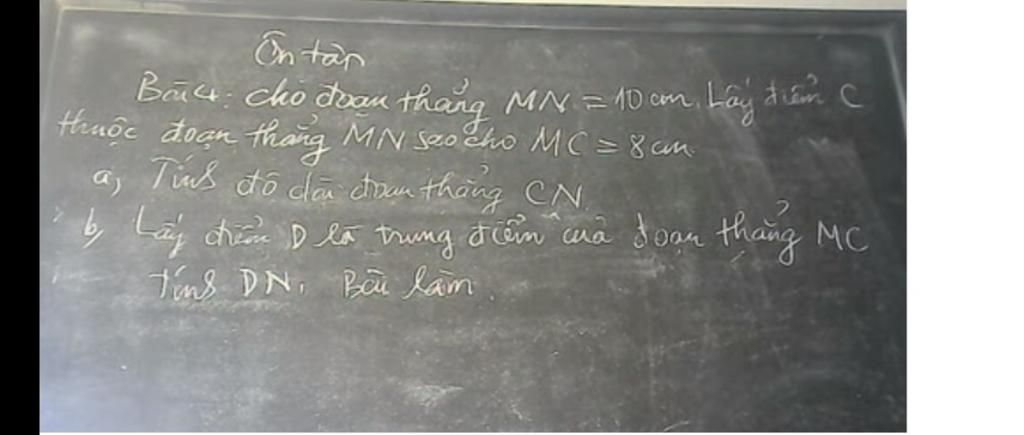 Ôn tập
Bài 4: cho đoạn thẳng MN = 10 cm. Lấy điểm C
thuộc đoạn thẳng MN sao cho MC = 8 cm
a, Tính độ dài đoạn thẳng CN.
b, Lấy điểm D là trung điểm của đoạn thẳng MC
tính DN. Bài làm.